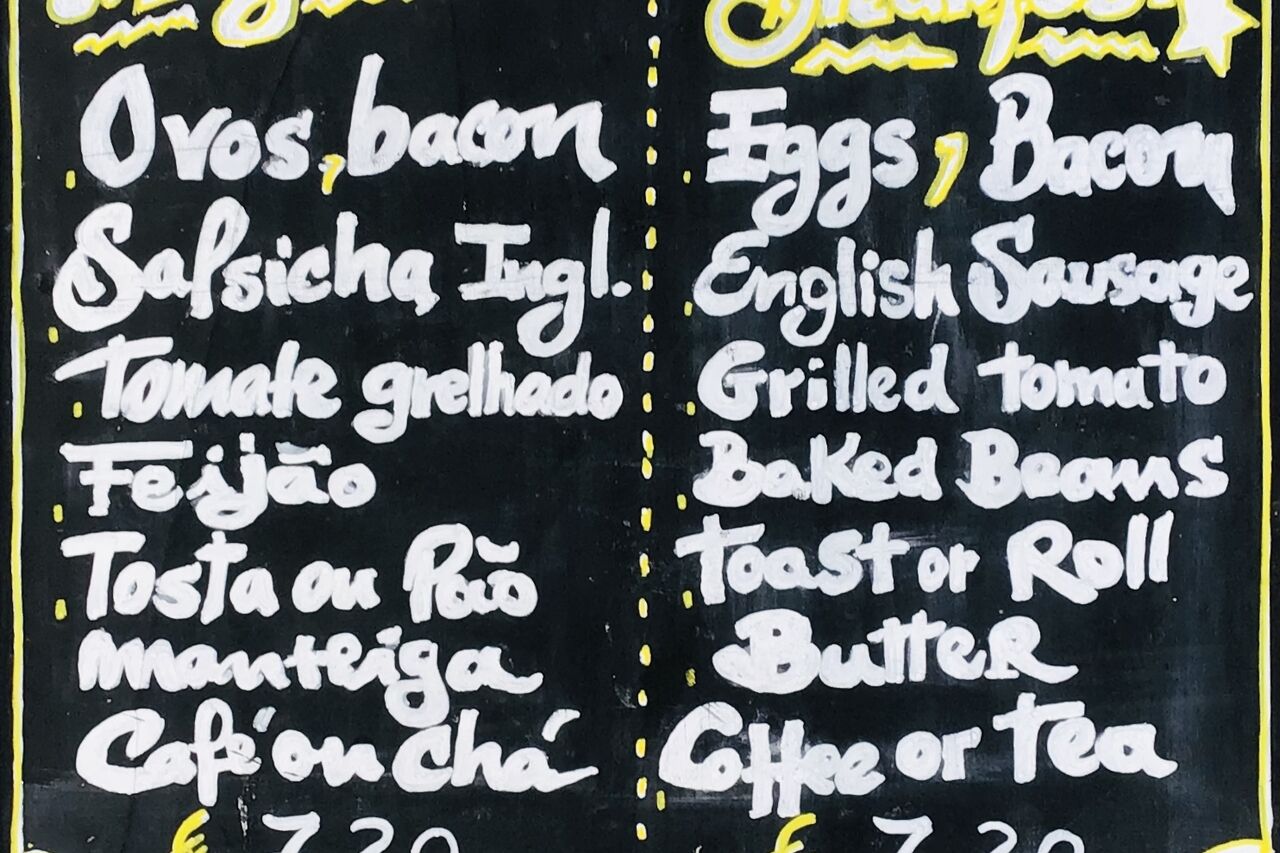 Ovos, bacon
Salsicha Ingl.
Tomate grelhado
Feijão
Tosta ou Pão
manteiga
Café ou chá
€ 7.20
Breakfast
Eggs, Bacon
English Sausage
Grilled tomato
Baked Beans
Toast or Roll
Butter
Coffee or Tea
€ 7.20